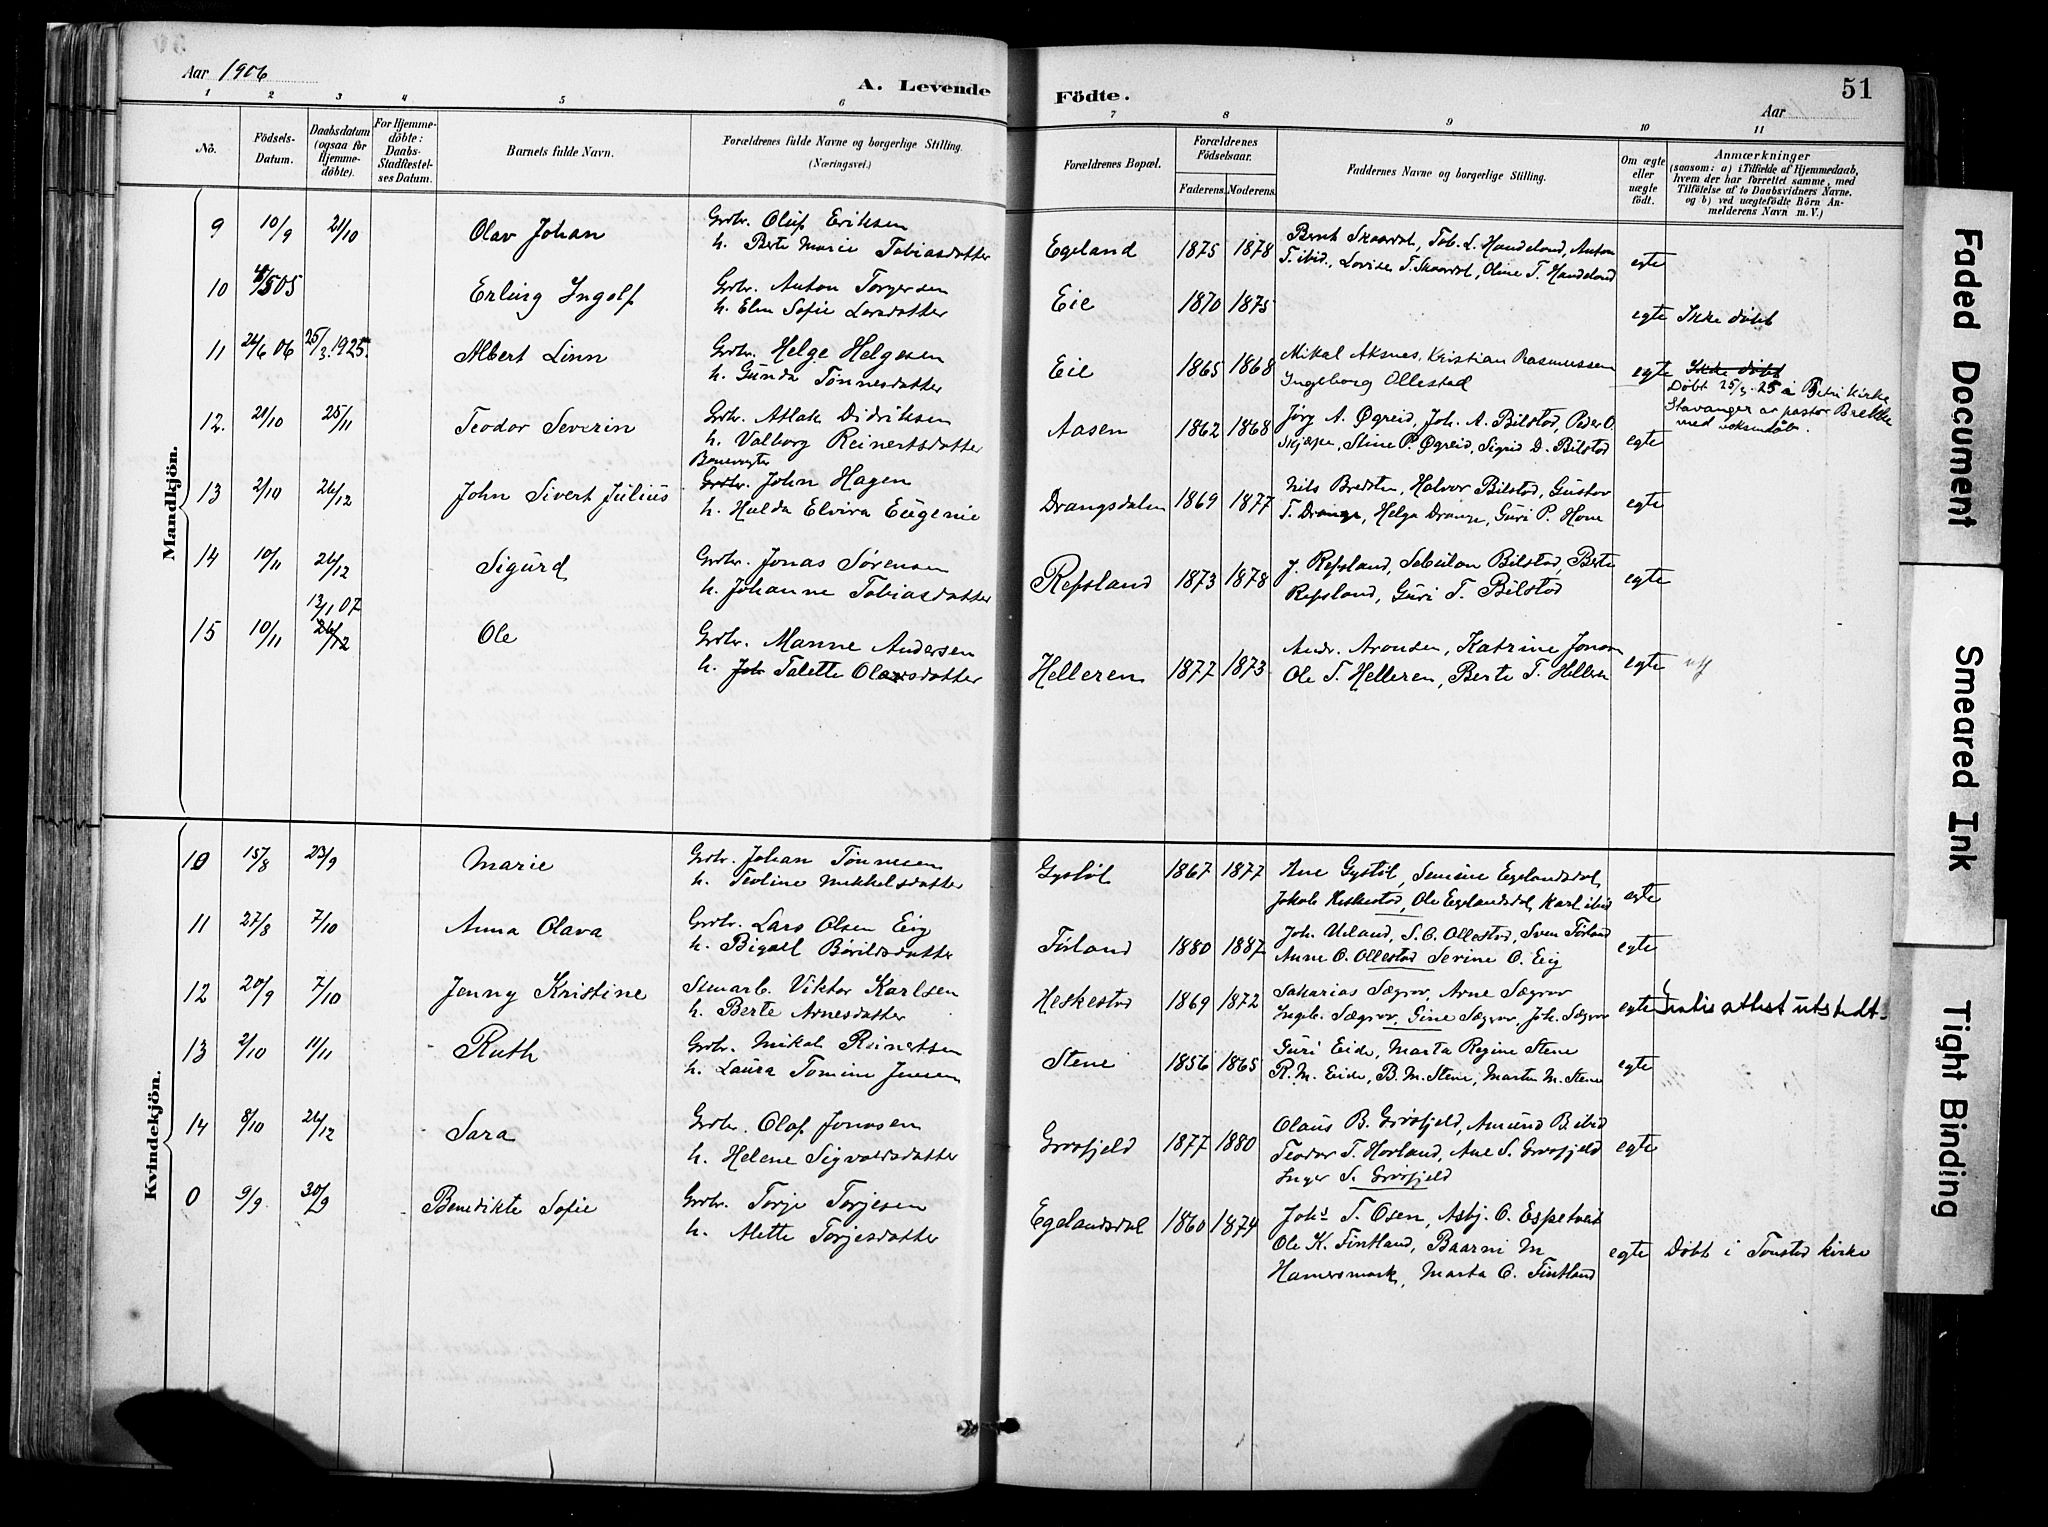 Aar 1906
A. Levende Födte.
51
Aar
1 2 3 4 5 6 7 8 9 10 11
No.
Födsels-Datum.
Daabsdatum (ogsaa for Hjemme-döbte).
For Hjemme-döbte: Daabs-Stadfæstel-ses Datum.
Barnets fulde Navn.
Forældrenes fulde Navne og borgerlige Stilling.
(Næringsvei.)
Forældrenes Bopæl.
Forældrenes Födselsaar.
Faderens. Moderens.
Faddernes Navne og borgerlige Stilling.
Om ægte eller uægte født.
Anmærkninger
(saasom: a) i Tilfælde af Hjemmedaab,
hvem der har forrettet samme, med
Tilföielse af to Daabsvidners Navne.
og b) ved uægtefödte Börn An-
melderens Navn m. V.)
Mandkjön.
9 10/9 21/10 Olav Johan Grdbr. Oluf Eriksen Egeland 1875 1878 Bernt Skaardal, Tob. L. Handeland, Anton egte
h. Berte Marie Tobiasdatter T. ibid., Lovise T. Skaardal, Oline T. Handeland
10 Erling Ingolf Grdbr. Anton Torgersen Eie 1870 1875 egte Ikke døbt
h. Elen Sofie Larsdatter
11 24/6 06 25/3.1925. Albert Linn Grdbr. Helge Helgesen Eie 1865 1868 Mikal Aksnes, Kristian Rasmussen egte Ikke døbt
h. Gunda Tønnesdatter Ingeborg Ollestad Døbt 25/3.25 i Petri Kirke
Stavanger av pastor Brekke
med voksendåb.
12. 21/10 25/11 Teodor Severin Grdbr. Atlak Didriksen Aasen 1862 1868 Jørg A. Øgreid, Joh. A. Bilstad, Peder O. egte
h. Valborg Reinertsdatter Skjæpe, Stine P. Øgreid, Sigrid D. Bilstad
Banevogter
13 2/10 26/12 John Sivert Julius Grdbr. John Hagen Drangsdalen 1869 1877 Nils Bredsten, Halvor Bilstad, Gustav egte
h. Hulda Elvira Eugenie T. Drange, Helga Drange, Guri P. Hom
14 10/11 26/12 Sigurd Grdbr. Jonas Sørensen Refsland 1873 1878 J. Refsland, Sebulon Bilstad, Berte egte
h. Johanne Tobiasdatter Refsland, Guri T. Bilstad
13/1 07
15 10/11 26/12 Ole Grdbr. Manne Andersen Helleren 1877 1873 Andr. Aronsen, Katrine Jonsen egte
h. Joh Talette Olausdatter Ole T. Helleren, Berte T. Helleren
Kvindekjön.
10 15/8 23/9 Marie Grdbr. Johan Tønnesen Gystøl 1867 1877 Ane Gystøl, Semine Egelandsdal, egte
h. Teoline Mikkelsdatter Jakob Heskestad, Ole Egelandsdal, Karl ibid
11 27/8 7/10 Anna Olava Grdbr. Lars Olsen Eig Tørland 1880 1887 Joh. Ueland, S. O. Ollestad, Sven Tørland egte
h. Bigael Børildsdatter Anne O. Ollestad Serine O. Eig
12 20/9 7/10 Jenny Kristine Stenarb. Viktor Karlsen Heskestad 1869 1872 Sakarias Sægrov, Arne Sægrov egte Gratis attest utstedt.
h. Berte Arnesdatter Ingeb. Sægrov, Gine Sægrov, Joh. Sægrov
13 2/10 11/11 Ruth Grdbr. Mikal Reinertsen Stene 1856 1865 Guri Eide, Marta Regine Stene egte
h. Laura Tomine Jensen R. M. Eide, B. M. Stene, Marten M. Stene
14 8/10 26/12 Sara Grdbr. Olaf Jonasen Grøsfjeld 1877 1880 Olaus B. Grøsfjeld, Amund B. ibid egte
h. Helene Sigvaldsdatter Teodor T. Hovland, Ane S. Grøsfjeld
Inger S. Grøsfjeld
0 9/9 30/9 Benedikte Sofie Grdbr. Torje Torjesen Egelandsdal 1860 1874 Johs T. Osen, Asbj. O. Espetveit
h. Alette Torjesdatter Ole K. Fintland, Baarni M egte Døbt i Tonstad kirke
Hamersmark, Marta O. Fintland
Faded Document
Smeared Ink
Tight Binding